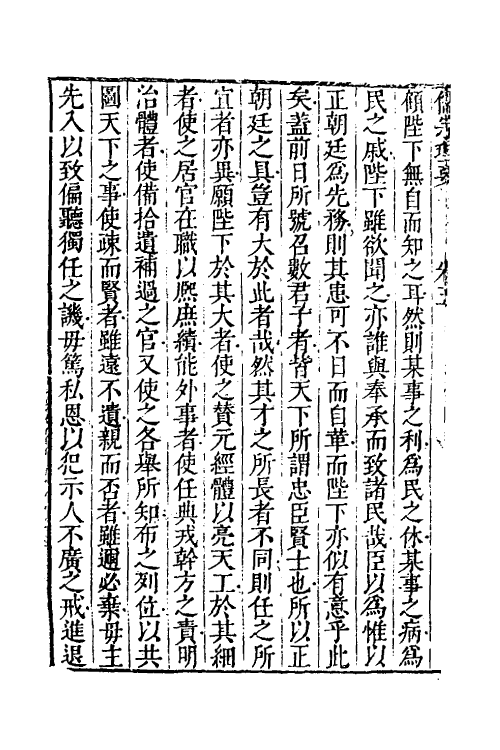 傾陛下無自而知之耳然則某事之利爲民之休某事之病爲
民之戚陛下雖欲聞之亦誰與奉承而致諸民哉臣以爲惟以
正朝廷爲先務則其患可不日而自革而陛下亦似有意乎此
矣蓋前日所號召數君子者皆天下所謂忠臣賢士也所以正
朝廷之具豈有大於此者哉然其才之所長者不同則任之所
宜者亦異願陛下於其大者使之贊元經體以亮天工於其細
者使之居官在職以熈庶績能外事者使任典戎幹方之責明
治體者使備拾遺補過之官又使之各舉所知布之列位以共
圖天下之事使疎而賢者雖遠不遺親而否者雖邇必棄毋主
先入以致偏聽獨任之譏毋篤私恩以犯示人不廣之戒進退